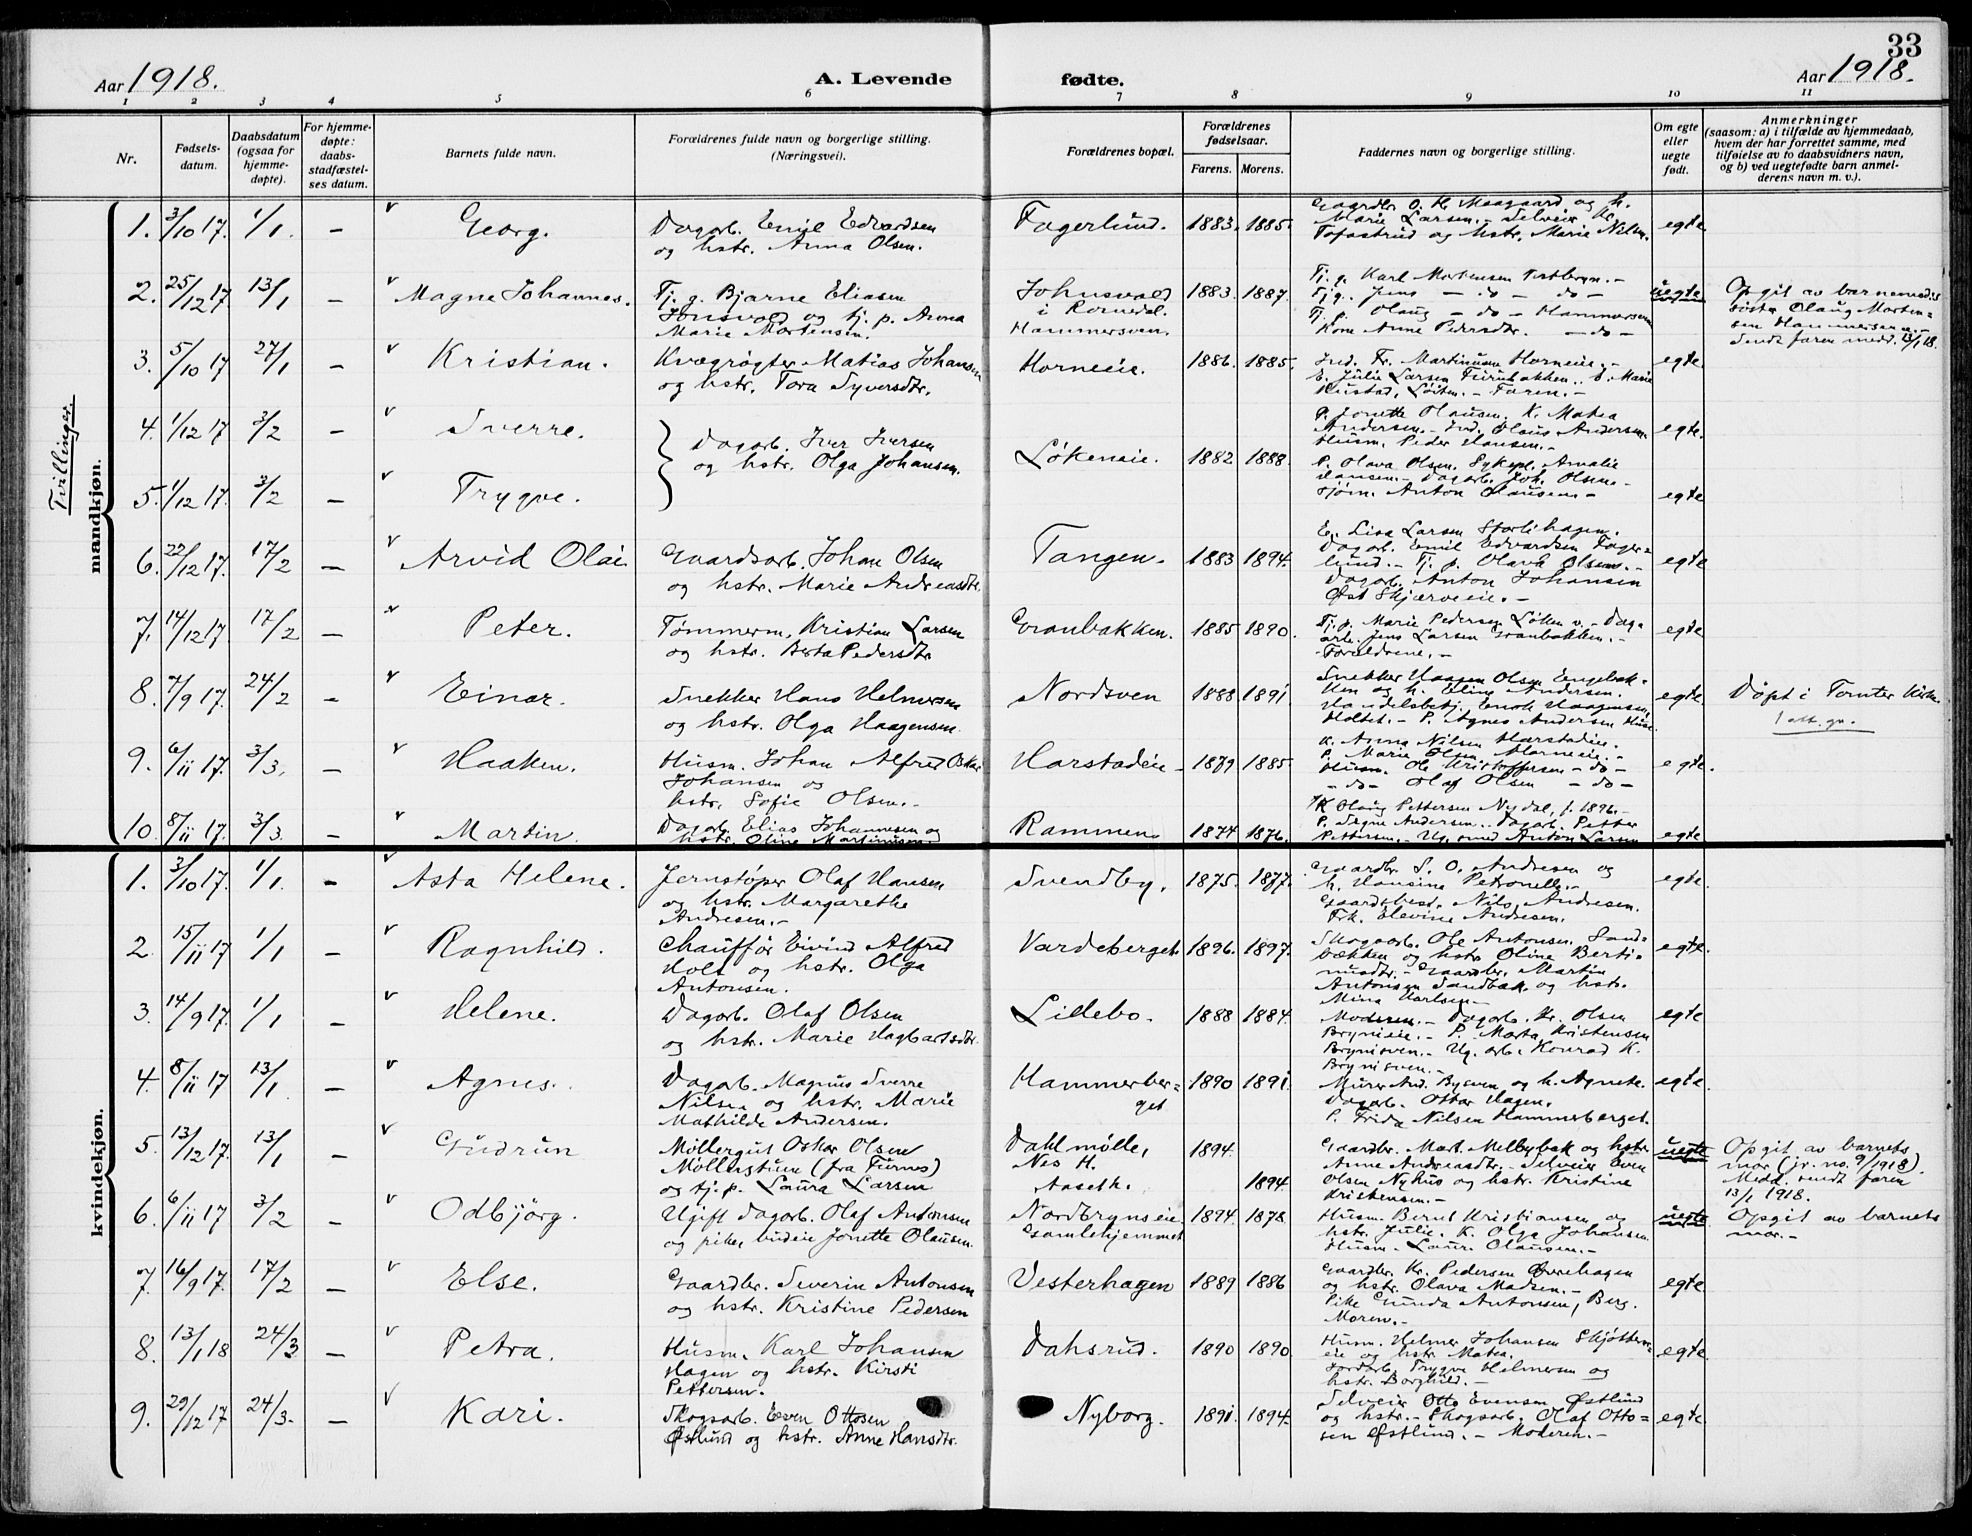 33
Aar 1918.
A. Levende fødte.
Aar 1918.
1 2 3 4 5 6 7 8 9 10 11
Nr.
Fødsels-
datum.
Daabsdatum
(ogsaa for
hjemme-
døpte).
For hjemme-
døpte:
daabs-
stadfæstel-
ses datum.
Barnets fulde navn.
Forældrenes fulde navn og borgerlige stilling.
(Næringsvei).
Forældrenes bopæl.
Forældrenes
fødselsaar.
Farens. Morens.
Faddernes navn og borgerlige stilling.
Om egte
eller
uegte
født.
Anmerkninger
(saasom: a) i tilfælde av hjemmedaab,
hvem der har forrettet samme, med
tilføielse av to daabsvidners navn,
og b) ved uegtefødte barn anmel-
derens navn m. v.).
mandkjøn.
Tvillinger.
1. 3/10 17. 1/1. – Georg.
Dagarb. Emil Edvardsen
og hstr. Anna Olsen.
Fagerlund. 1883. 1885.
Gaardbr. O. H. Maagaard og h.
Marie Larsen. – Selveier Kr.
Tofastrud og hstr. Marie Nilsen.
egte.
2. 25/12 17. 13/1 – Magne Johannes.
Tj. g. Bjarne Eliasen
Jonsvold og tj. p. Anna
Marie Mortensen.
Johnsvold
i Romedal.
Hammersven.
1883. 1887.
Tj. g. Karl Mortensen –
Tj g. Jens – do – do –
Tj. p. Olaug – do – Hammersven
Kone Anne Pedersdtr. – do –
uegte
Opgit av barnemoders
søster Olaug Morten-
sen Hammersven. –
Sendt faren medd. 13/1 18.
3. 5/10 17 27/1 – Kristian.
Kvægrøgter Matias Johansen
og hstr. Tora Syversdtr.
Horneie. 1886. 1885.
Ind. Fr. Martinsen Horneie. –
E. Julie Larsen Furubakken. P. Marie
Rustad, Løiten. – Faren. –
egte
4. 1/12 17 3/2 – Sverre.
Dagarb. Iver Iversen
og hstr. Olga Johansen.
Løkeneie. 1882 1888.
P. Jonette Olausen. K. Matea
Andersen. – Ind. Olaus Andersen.
Husm. Peder Hansen. –
egte.
5. 1/12 17. 3/2 – Trygve.
P. Olava Olsen. Sykepl. Amalie
Hansen. – Dagarb. Joh. Olsen. –
Anton Olausen. –
egte
6. 22/12 17. 17/2 – Arvid Olai.
Gaardsarb. Johan Olsen
og hstr. Marie Andreasdtr.
Tangen. 1883 1894.
E. Lisa Larsen Storlihagen.
Dagarb. Emil Edvardsen Fager-
lund. – Tj. p. Olava Olsen. –
Dagarb. Anton Johansen
Øst Skjærveeie. –
egte
7. 14/12 17 17/2 – Peter.
Tømmerm. Kristian Larsen
og hstr. Berta Pedersdtr.
Granbakken. 1885 1890.
Tj. p. Marie Pedersen Løken v. – Dag-
arb. Jens Larsen Granbakken. –
Forældrene. –
egte
8. 7/9 17. 24/2 – Einar.
Snekker Hans Helmersen
og hstr. Olga Haagensen.
Nordsven 1888 1891
Snekker Haagen Olsen Engebak-
ken og h. Eline Andersen.
Handelsbetj. Enok Haagensen,
Holtet. – P. Agnes Andersen
egte
Døpt i Tomter Kirke.
9. 6/11 17. 3/3. – Haaken.
Husm. Johan Alfred Oskar
Johansen og
hstr. Sofie Olsen. –
Harstadeie – 1879 1885
K. Anna Nilsen Harstadeie.
P. Marie Olsen Horneie. –
Husm. Ole Kristoffersen – do –
– do – Olaf Olsen – do –
egte.
10. 8/11 17. 3/3. – Martin.
Dagarb. Elias Johannesen og
hstr. Oline Martinusen.
Rammen 1874 1876.
K. Olaug Pettersen Nydal, f. 1896. –
P. Signe Andersen. Dagarb. Petter
Pettersen. – Ug. smed Anton Larsen
egte
kvindekjøn.
1. 3/10 17. 1/1. – Asta Helene.
Jernstøper Olaf Hansen
og hstr. Margarethe
Andresen. –
Svendby. 1875. 1877.
Gaardbr. S. O. Andresen og
h. Hansine Petronelle. –
Gaardsbest. Nils Andresen.
Frk. Elevine Andresen.
egte.
2. 15/11 17 1/1 – Ragnhild.
Chauffør Eivind Alfred
Holt og hstr. Olga
Antonsen.
Vardeberget. 1896. 1897.
Skogsarb. Ole Antonsen Sand-
bækken og hstr Oline Berti-
nusdtr. – Gaardbr. Martin
Antonsen Sandbæk og hstr.
Mina Karlsen. –
egte.
3. 14/9 17. 1/1 – Helene.
Dagarb. Olaf Olsen
og hstr. Marie Hagbartsdtr.
Lillebo. 1888 1884.
Moderen. – Dagarb. Kr. Olsen
Brynieie. – P. Marta Kristensen
Brynisven. – Ug. arb. Konrad K.
Brynisven. –
egte
4. 8/11 17 13/1 – Agnes.
Dagarb. Magnus Sverre
Nilsen og hstr. Marie
Mathilde Andersen.
Hammerber-
get
1890 1891.
Murer And. Bysven og h. Agnete.
Dagarb. Ottar Hagen.
P. Frida Nilsen Hammerberget.
egte.
5. 13/12 17. 13/1 – Gudrun
Møllergut Oskar Olsen
Møllerstuen (fra Furnes)
og tj. p. Laura Larsen
Dahl mølle,
Nes H.
Aaseth.
1894. 1894.
Gaardbr. Mart. Mellybæk og hstr.
Anne Andreasdtr. – Selveier Even
Olsen Nyhus og hstr. Kristine
Kristensen. –
uegte
Opgit av barnets
mor (jr. no. 9/1918).
Medd. sendt faren
13/1 1918.
6. 6/11 17 3/2 – Odbjørg.
Ugift dagarb. Olaf Antonsen
og pike, budeie Jonette Olausen.
Nordbrynseie.
Gamlehjemmet
1894. 1878.
Husm. Bernt Kristiansen og
hstr. Julie. K. Olga Johansen.
Husm. Laur. Olausen. –
uegte
Opgit av barnets
mor. –
7. 16/9 17. 17/2 – Else.
Gaardbr. Severin Antonsen
og hstr. Kristine Pedersen
Vesterhagen 1889 1886
Gaardbr. Kr. Pedersen Øvrehagen
og hstr. Olava Madsen. –
Pike Gunda Antonsen, Berg.
Moren. –
egte
8. 13/1 18 24/3 – Petra.
Husm. Karl Johansen
Hagen og hstr. Kirsti
Pettersen.
Dahsrud. 1890 1890.
Husm. Helmer Johansen
eie og hstr Matea.
Jordarb. Trygve Helmersen og
hstr. Borghild. –
egte.
9. 29/12 17 24/3. – Kari.
Skogsarb. Even Ottosen
Østlund og hstr. Anne Hansdtr.
Nyborg. 1891. 1894.
Selveier Otto Evensen Østlund
og hstr. – Skogsarb. Olaf Otto-
sen Østlund. – Moderen. –
egte